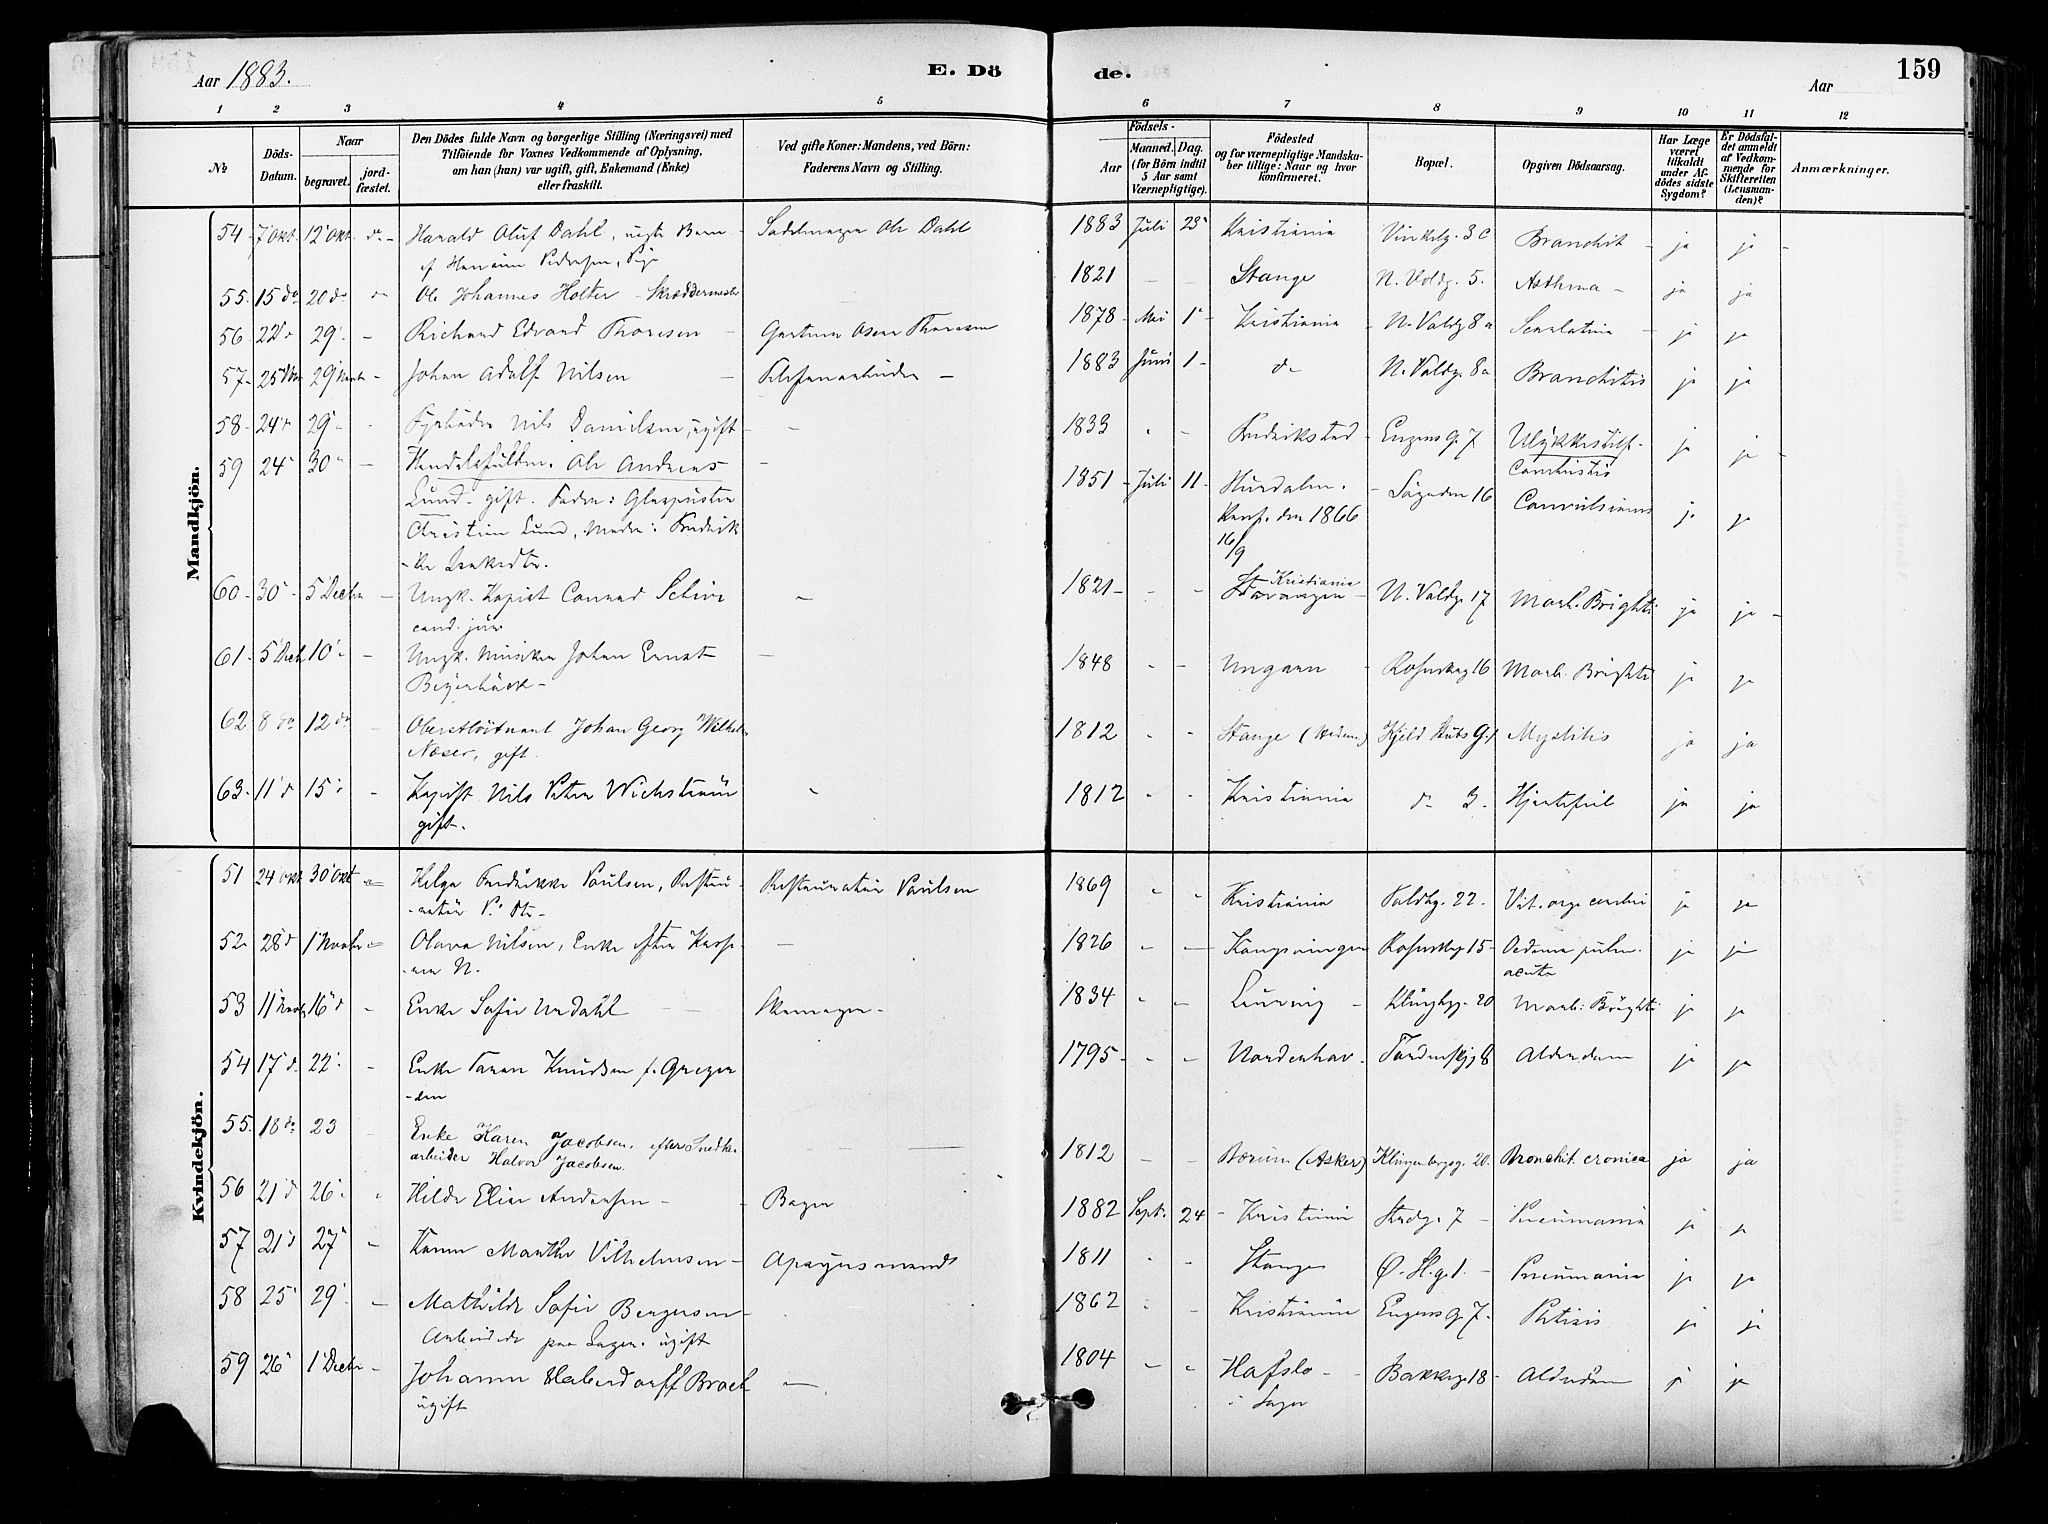 Aar 1883.
E. Dö
de.
Aar
159
1 2 3 4 5 6 7 8 9 10 11 12
No
Döds-Datum.
Naar
begravet.
jord-fæstet.
Den Dödes fulde Navn og borgerlige Stilling (Næringsvei) med
Tilföiende for Voxnes Vedkommende af Oplysning,
om han (hun) var ugift, gift, Enkemand (Enke)
eller fraskilt.
Ved gifte Koner: Mandens, ved Börn:
Faderens Navn og Stilling.
Födsels-
Aar
Maaned. Dag.
(for Börn indtil
5 Aar samt
Værnepligtige).
Födested
og for værnepligtige Mandska-
ber tillige: Naar og hvor
konfirmeret.
Bopæl.
Opgiven Dödsaarsag.
Har Læge
været
tilkaldt
under Af-
dödes sidste
Sygdom?
Er Dödsfal-
det anmeldt
af Vedkom-
mende for
Skifteretten
(Lensman-
den)?
Anmærkninger.
Mandkjön.
54 7 Okt 12 Okt. do Harald Oluf Dahl, uægte Barn Sadelmager Ole Dahl 1883 Juli 23 Kristiania 3 C Bronchit ja ja
Pige
55. 15 do 20 do do Ole Johannes Holter Skræddermester 1821 Stange N. Voldg. 5. Asthma ja ja
56 22 d 29 Richard Edvard Thoresen Gartner Thoresen 1878 Mai 1 Kristiania N. Voldg 8a Scarlatina ja ja
57 25 29 Johan Adolf Nilsen 1883 Juni 1 do N. Voldg. 8a Bronchitis ja ja
58 24 d 29 Fyrböder Nils Danielsen, ugift 1833 Fredrikstad Engens G. 7 Ulykkestilf. ja ja
Combustis
59 24 30 Handelsfuldm. Ole Andreas 1851 Juli 11 Hurdalen. 16 Convulsiones ja ja
Lund. gift. Fader: Glaspuster Konf. den 1866
Christian Lund, Moder: Fredrik- 16/9
60 30 5 Decbr Ungk. Kopist Conrad Schive 1821 Kristiania Stavanger N. Voldg 17 Morb. Brighti ja ja
cand. jur.
61 5 Decb 10 Ungk. Musiker Johan Ernst 1848 Ungarn 16 Morb. Brighti ja ja
62 8 do 12 do Oberstlöitnant Johan Georg Wilhelm 1812 Stange (Hedem.) Kjeld Stubs G. 1 Myelitis ja ja
Næser, gift.
63 11 d 15 Kopist Nils Peter Wichström 1812 Kristiania do 3. Hjertefeil ja ja
gift.
Kvindekjön.
51 24 Okt 30 Okt Helga Fredrikke Paulsen, Restau- Restauratör Paulsen 1869 Kristiania Voldg. 22. Vit. org. cordis ja ja
ratör P.s Dtr.
52 28 d 1 Novbr Olava Nilsen, Enke efter 1826 Kongsvinger 15 Oedema pulm. ja ja
N. acuta
53 11 Novb 16 d Enke Sofie Undahl Skomager 1834 Laurvig Klingbgg. 20 Morb. Brighti ja ja
54 17 d. 22 Enke Knudsen f. 1795 Norderhov. Tordenskjg 8 Alderdom ja ja
55. 18 do 23 Enke Karen Jacobsen. efter Snedker- 1812 Bærum (Asker) Klingenbergsg. 20. Bronchit. cronica ja ja
arbeider Halvor Jacobsen.
56 21 d 26 Hilda Elise Andersen Bager 1882 Sept. 24 Kristiania 7 Pneumonia ja ja
57 21 d 27 Karen Marthe Vilhelmsen 1811 Stange Ø. Sl.g. 1. Pneumonia ja ja
58 25 29 Mathilde Sofie Bergersen 1862 Kristiania Engens G 7. Phtisis ja ja
paa ugift
59 26 1 Decbr Johanne Haberdorff Broch 1804 Hafslo Bakkeg. 18 Alderdom ja ja
ugift i Sogn